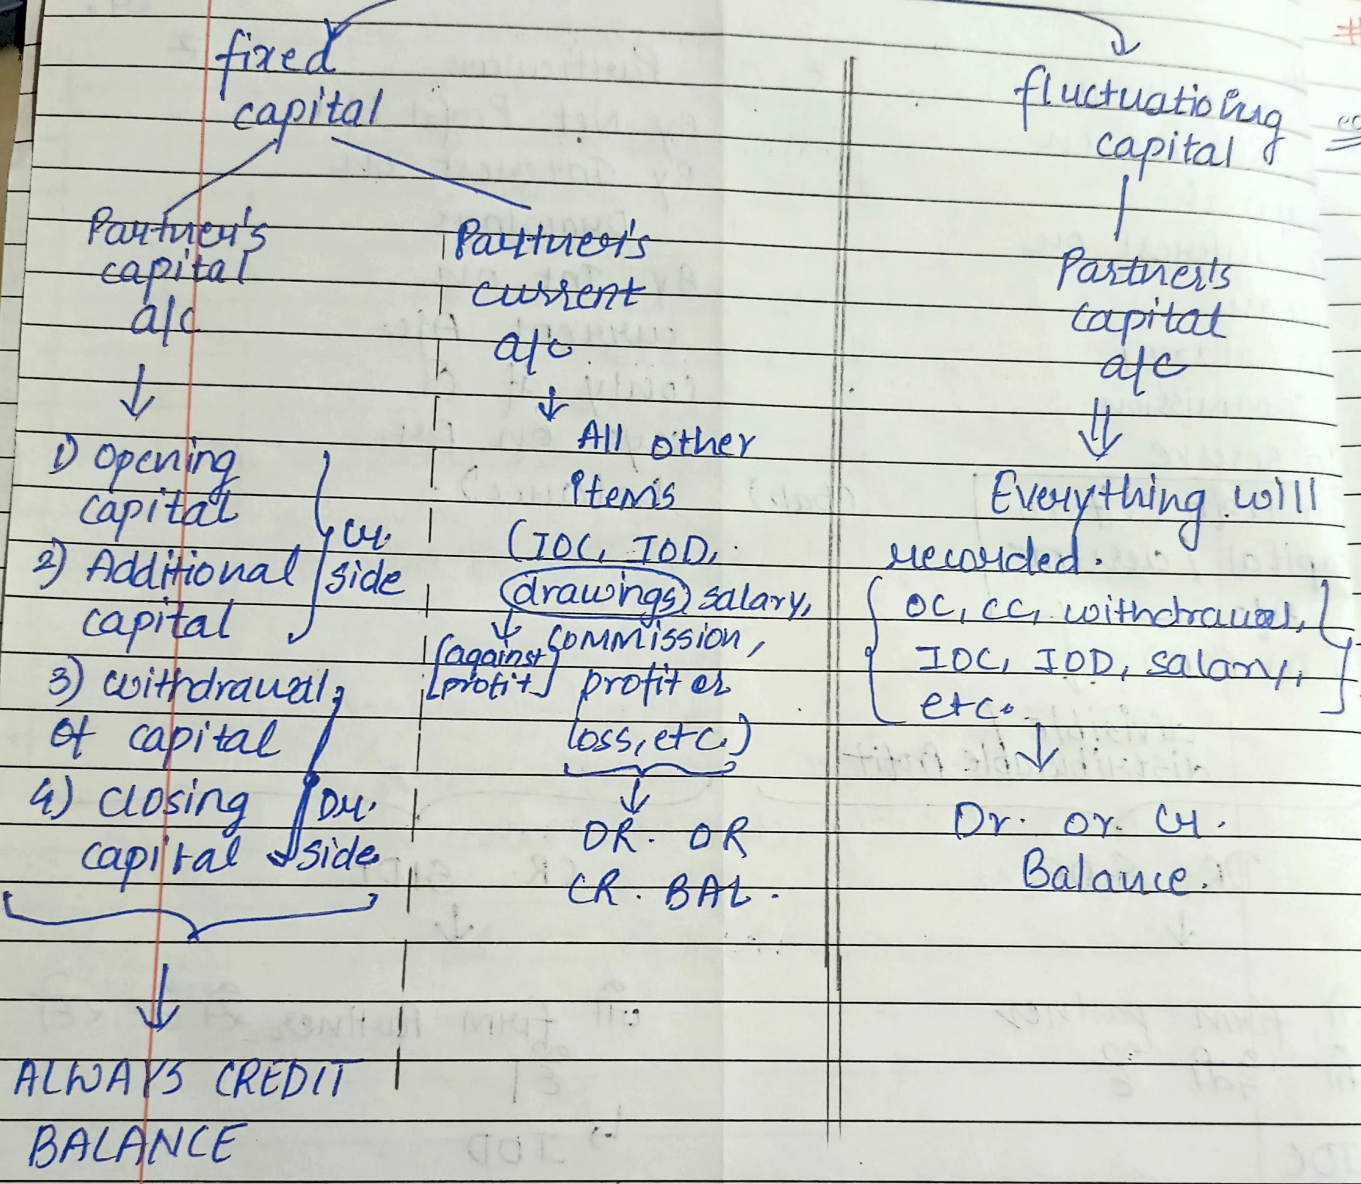 fixed
capital
Partner's
capital
a/c
1) Opening
capital
2) Additional
capital
Cr.
side
3) withdrawal
of capital
4) closing
capital
Dr.
side
ALWAYS CREDIT
BALANCE
Partner's
current
a/c
All other
items
(IOC, IOD,
drawings) salary,
commission,
[against
profit]
profit or
loss, etc.)
DR. OR
CR. BAL.
fluctuating
capital
Partner's
capital
a/c
Everything will
recorded.
OC, CC, withdrawal,
IOC, IOD, salary,
etc.
Dr. or. Cr.
Balance.